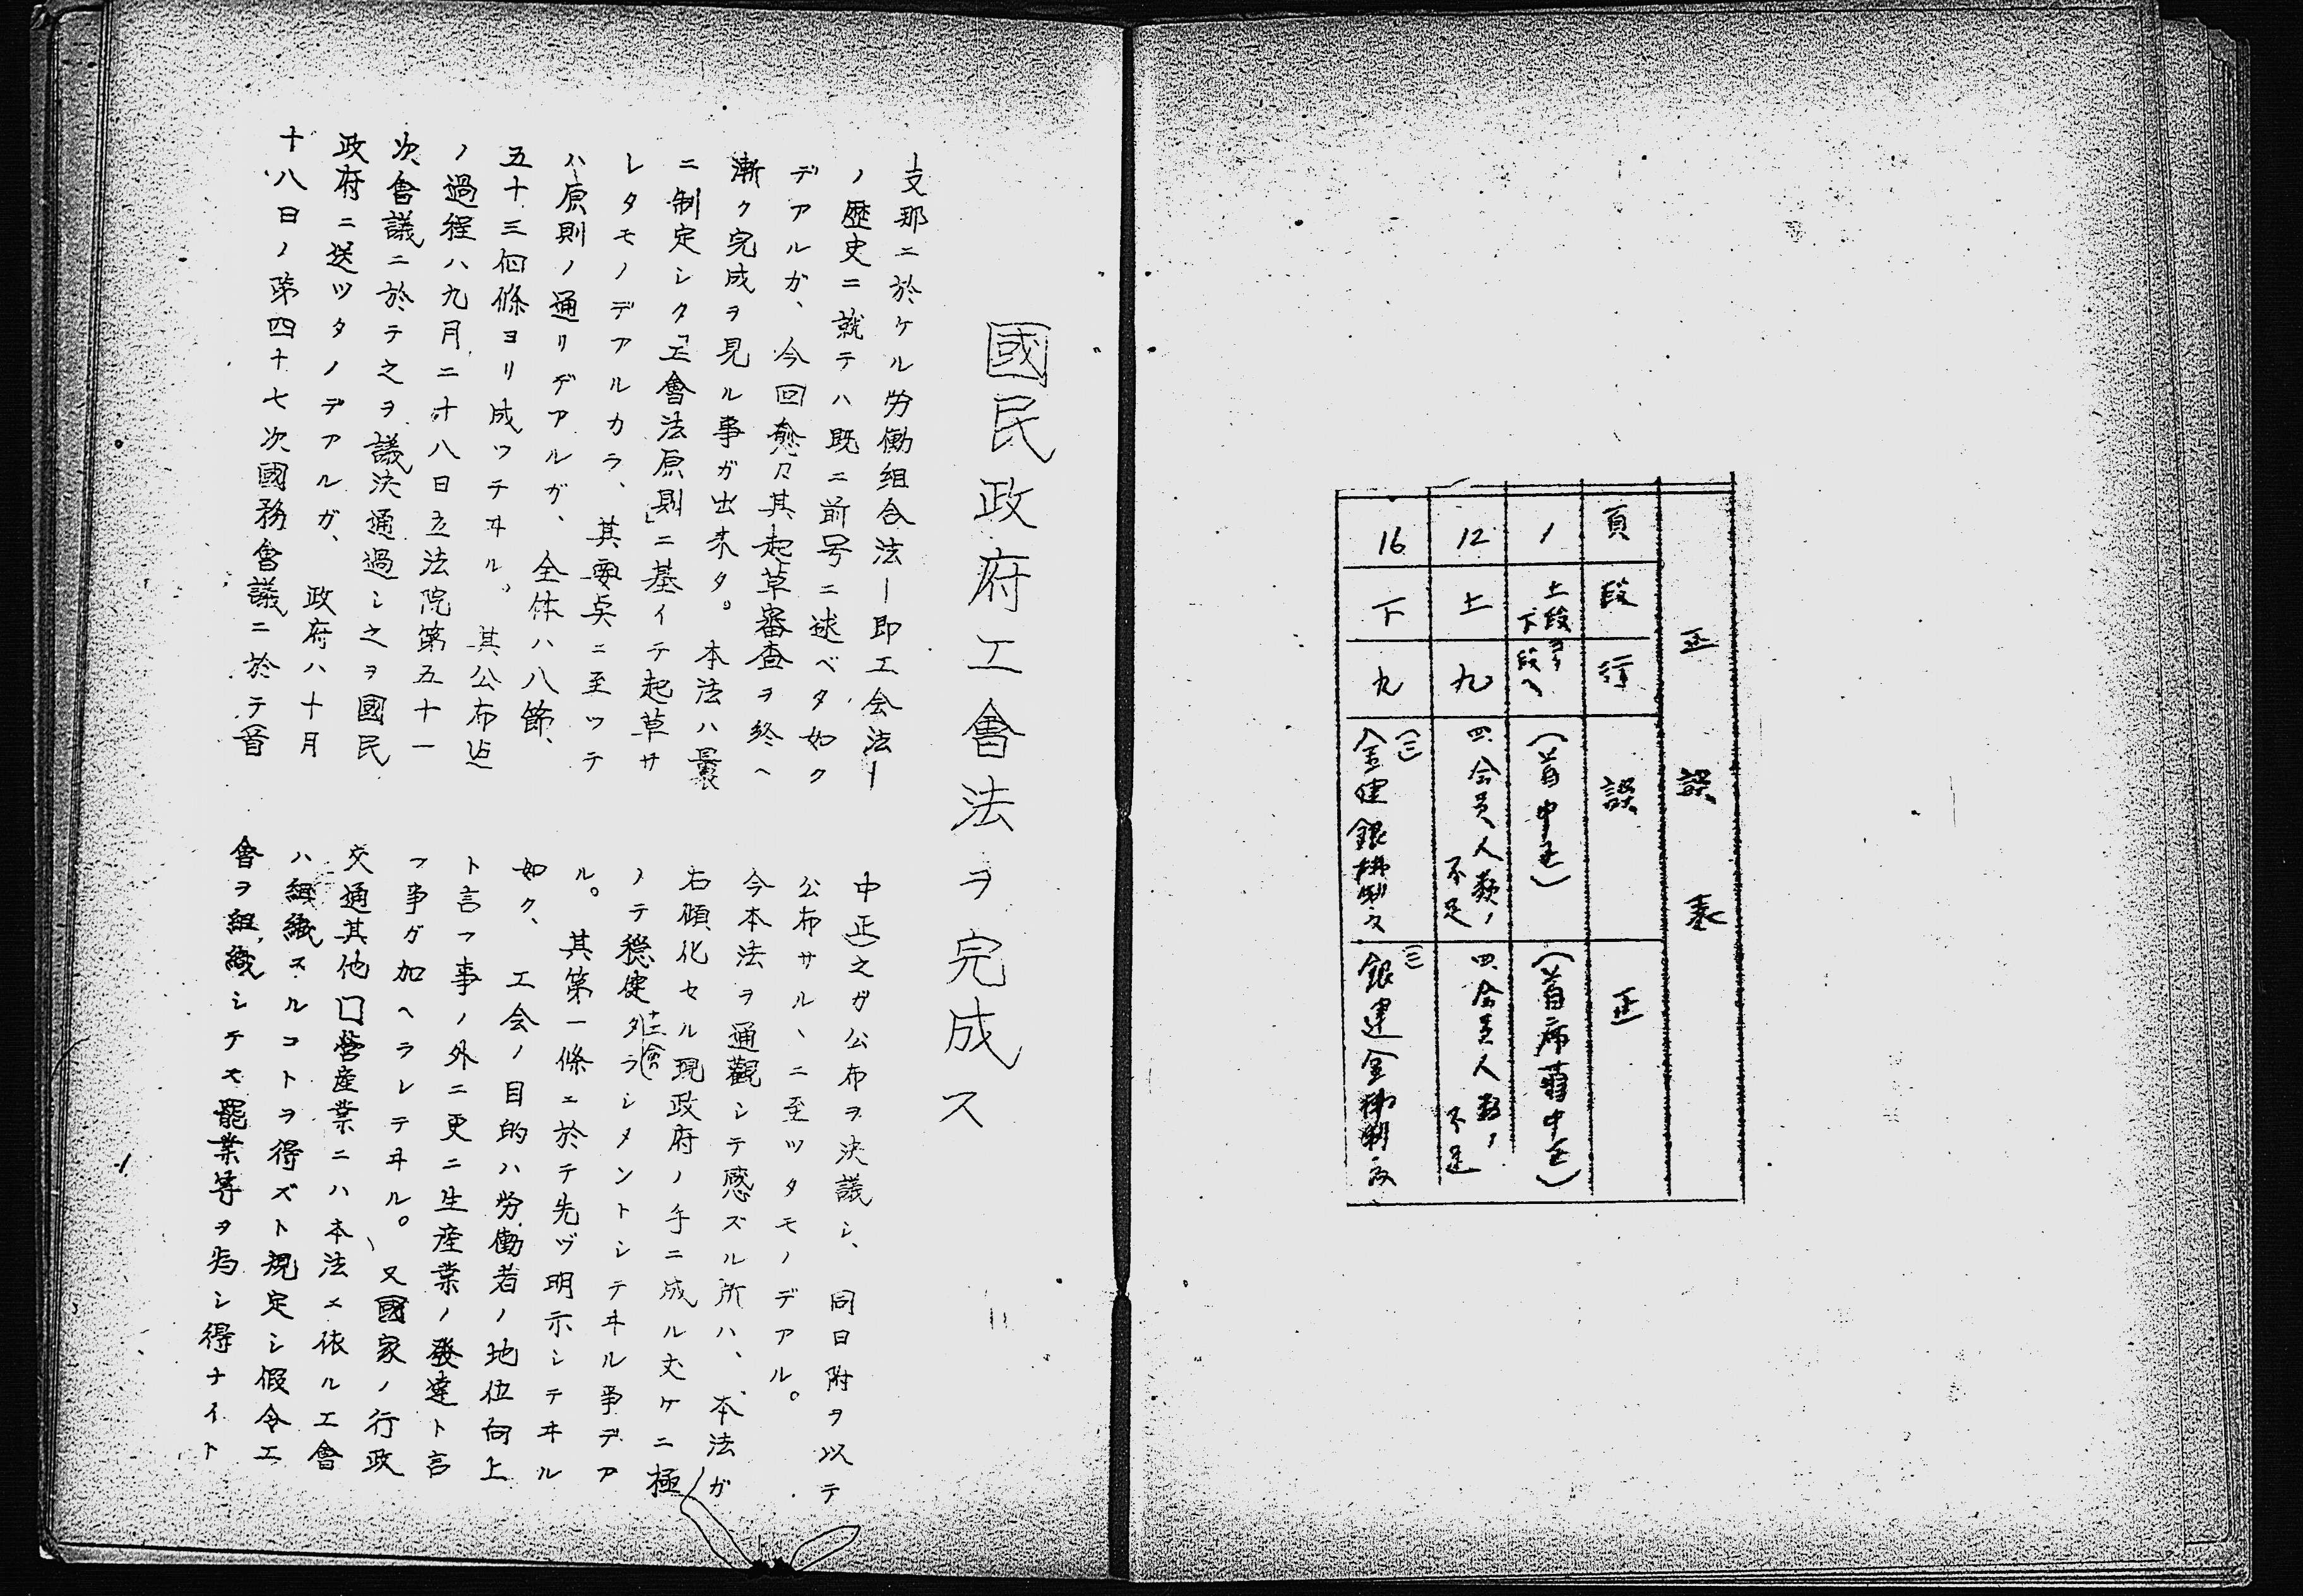 正誤表
頁 段 行 誤 正
1 上段ヨリ下段ヘ (首中正) (首席蒋中正)
12 上 九 四、会員人数ノ不足 四、会員人数ノ不足
16 下 九 (三)金建銀払制度 (三)銀建金払制度
國民政府工會法ヲ完成ス
支那ニ於ケル労働組合法ー即工会法ー
ノ歴史ニ就テハ既ニ前号ニ述ベタ如ク
デアルガ、今回愈々其起草審査ヲ終ヘ
漸ク完成ヲ見ル事ガ出来タ。本法ハ曩
ニ制定シタ「工會法原則」ニ基イテ起草サ
レタモノデアルカラ、其要点ニ至ツテ
ハ原則ノ通リデアルガ、全体ハ八節、
五十三個條ヨリ成ツテヰル。其公布迠
ノ過程ハ九月二十八日立法院第五十一
次會議ニ於テ之ヲ議決通過シ之ヲ國民
政府ニ送ツタノデアルガ、政府ハ十月
十八日ノ第四十七次國務會議ニ於テ(首
中正)之ガ公布ヲ決議シ、同日附ヲ以テ
公布サルヽニ至ツタモノデアル。
今本法ヲ通觀シテ感ズル所ハ、本法ガ
右傾化セル現政府ノ手ニ成ル丈ケニ極
メテ穏健タラシメントシテヰル事デア
ル。其第一條ニ於テ先ヅ明示シテヰル
如ク、工会ノ目的ハ労働者ノ地位向上
ト言フ事ノ外ニ更ニ生産業ノ發達ト言
フ事ガ加ヘラレテヰル。又國家ノ行政
交通其他口營産業ニハ本法ニ依ル工會
ハ組織スルコトヲ得ズト規定シ假令工
會ヲ組織シテモ罷業等ヲ為シ得ナイト